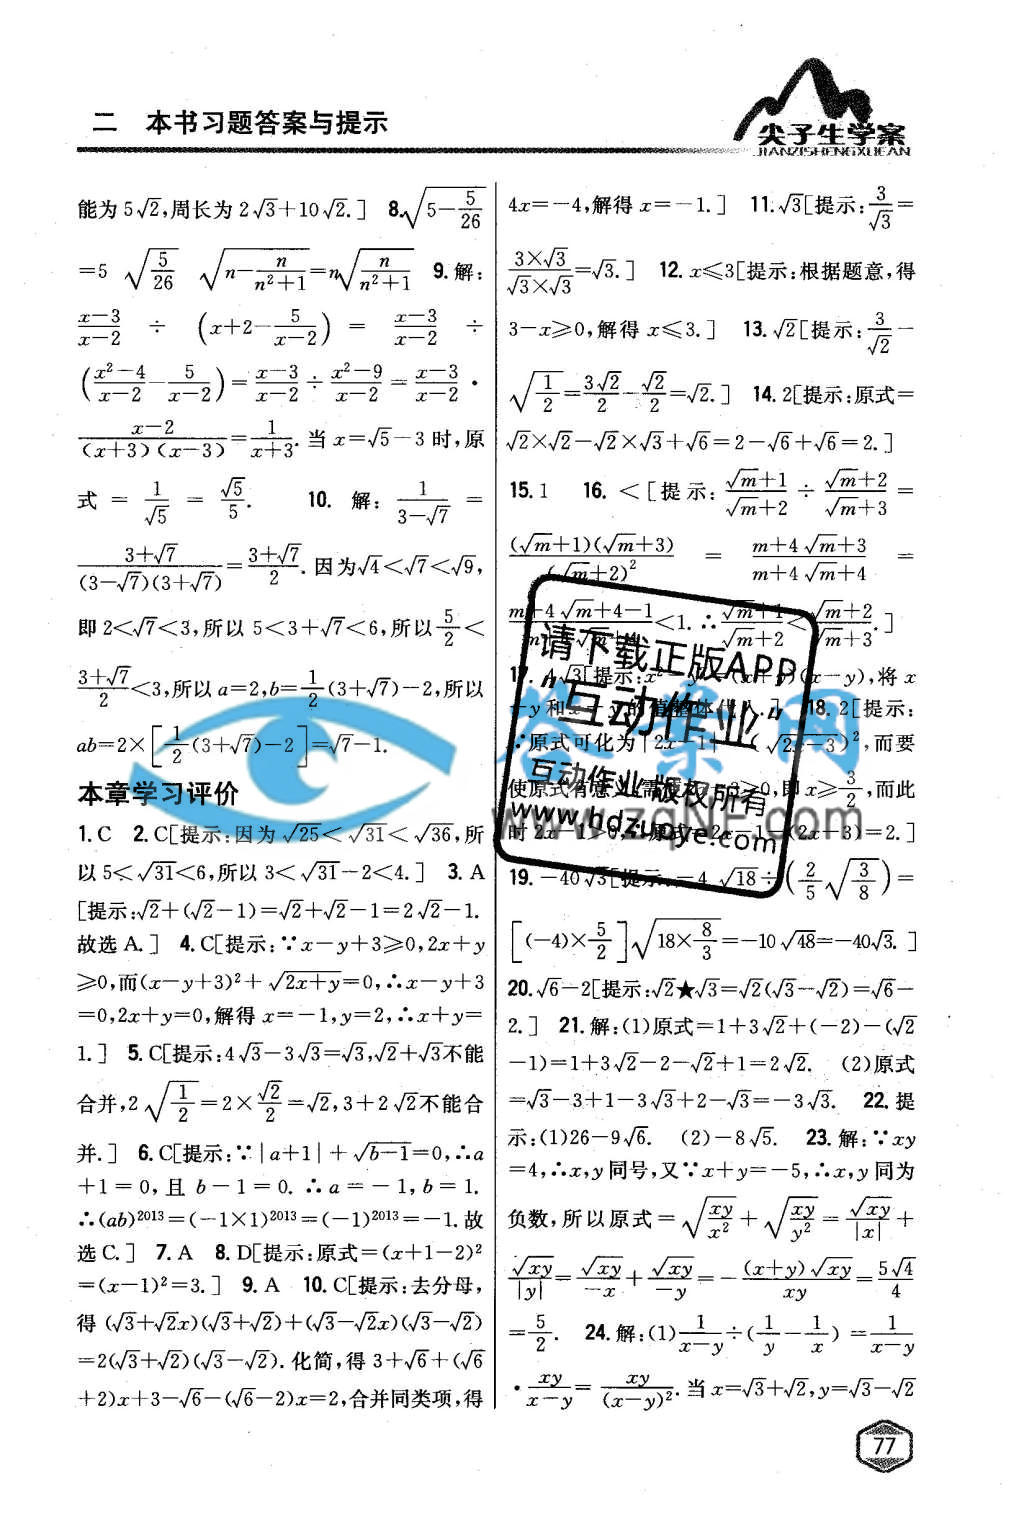 二 本书习题答案与提示
尖子生学案
JIANZISHENGXUEAN
能为 5√2,周长为 2√3+10√2.] 8.√(5-5/26)
=5 √(5/26) √(n-n/(n²+1))=n√(n/(n²+1)) 9.解:
(x-3)/(x-2) ÷ (x+2-5/(x-2)) = (x-3)/(x-2) ÷
((x²-4)/(x-2)-5/(x-2))=(x-3)/(x-2)÷(x²-9)/(x-2)=(x-3)/(x-2)·
(x-2)/((x+3)(x-3))=1/(x+3).当 x=√5-3 时,原
式 = 1/√5 = √5/5. 10. 解: 1/(3-√7) =
(3+√7)/((3-√7)(3+√7))=(3+√7)/2.因为√4<√7<√9,
即 2<√7<3,所以 5<3+√7<6,所以 5/2<
(3+√7)/2<3,所以 a=2,b=1/2(3+√7)-2,所以
ab=2×[1/2(3+√7)-2]=√7-1.
本章学习评价
1.C 2.C[提示:因为 √25<√31<√36,所
以 5<√31<6,所以 3<√31-2<4.] 3.A
[提示:√2+(√2-1)=√2+√2-1=2√2-1.
故选 A.] 4.C[提示:∵x-y+3≥0,2x+y
≥0,而(x-y+3)²+√(2x+y)=0,∴x-y+3
=0,2x+y=0,解得 x=-1,y=2,∴x+y=
1.] 5.C[提示:4√3-3√3=√3,√2+√3不能
合并,2√(1/2)=2×√2/2=√2,3+2√2不能合
并.] 6.C[提示:∵|a+1|+√(b-1)=0,∴a
+1=0,且 b-1=0.∴a=-1,b=1.
∴(ab)²⁰¹³=(-1×1)²⁰¹³=(-1)²⁰¹³=-1.故
选 C.] 7.A 8.D[提示:原式=(x+1-2)²
=(x-1)²=3.] 9.A 10.C[提示:去分母,
得(√3+√2x)(√3+√2)+(√3-√2x)(√3-√2)
=2(√3+√2)(√3-√2).化简,得 3+√6+(√6
+2)x+3-√6-(√6-2)x=2,合并同类项,得
4x=-4,解得 x=-1.] 11.√3[提示:3/√3=
(3×√3)/(√3×√3)=√3.] 12.x≤3[提示:根据题意,得
3-x≥0,解得 x≤3.] 13.√2[提示:3/√2-
√(1/2)=3√2/2-√2/2=√2.] 14.2[提示:原式=
√2×√2-√2×√3+√6=2-√6+√6=2.]
15.1 16.<[提示:(√m+1)/(√m+2)÷(√m+2)/(√m+3)=
(√m+1)(√m+3)/(√m+2)² = (m+4√m+3)/(m+4√m+4) =
<1.∴(√m+1)/(√m+2)<(√m+2)/(√m+3).]
17.4√3[提示:x²-y²=(x+y)(x-y),将 x
+y 和 x-y 的值整体代入.] 18.2[提示:
∵原式可化为|2x-1|-(√(2x-3))²,而要
使原式有意义,需要2x-3≥0,即 x≥3/2,而此
时 2x-1>0,∴原式=2x-1-(2x-3)=2.]
19.-40√3[提示:-4√18÷(2/5√(3/8))=
[(-4)×5/2]√(18×8/3)=-10√48=-40√3.]
20.√6-2[提示:√2★√3=√2(√3-√2)=√6-
2.] 21.解:(1)原式=1+3√2+(-2)-(√2
-1)=1+3√2-2-√2+1=2√2. (2)原式
=√3-3+1-3√3+2-√3=-3√3. 22.提
示:(1)26-9√6. (2)-8√5. 23.解:∵xy
=4,∴x,y 同号,又∵x+y=-5,∴x,y 同为
负数,所以原式=√(xy/x²)+√(xy/y²)=√(xy)/|x|+
√(xy)/|y|=√(xy)/(-x)+√(xy)/(-y)=-(x+y)√(xy)/(xy)=5√4/4
=5/2. 24.解:(1)1/(x-y)÷(1/y-1/x)=1/(x-y)
·xy/(x-y)=xy/(x-y)².当 x=√3+√2,y=√3-√2
77
请下载正版APP
"互动作业"
互动作业版权所有
www.hdzuoye.com
答案网
www.zqNF.com